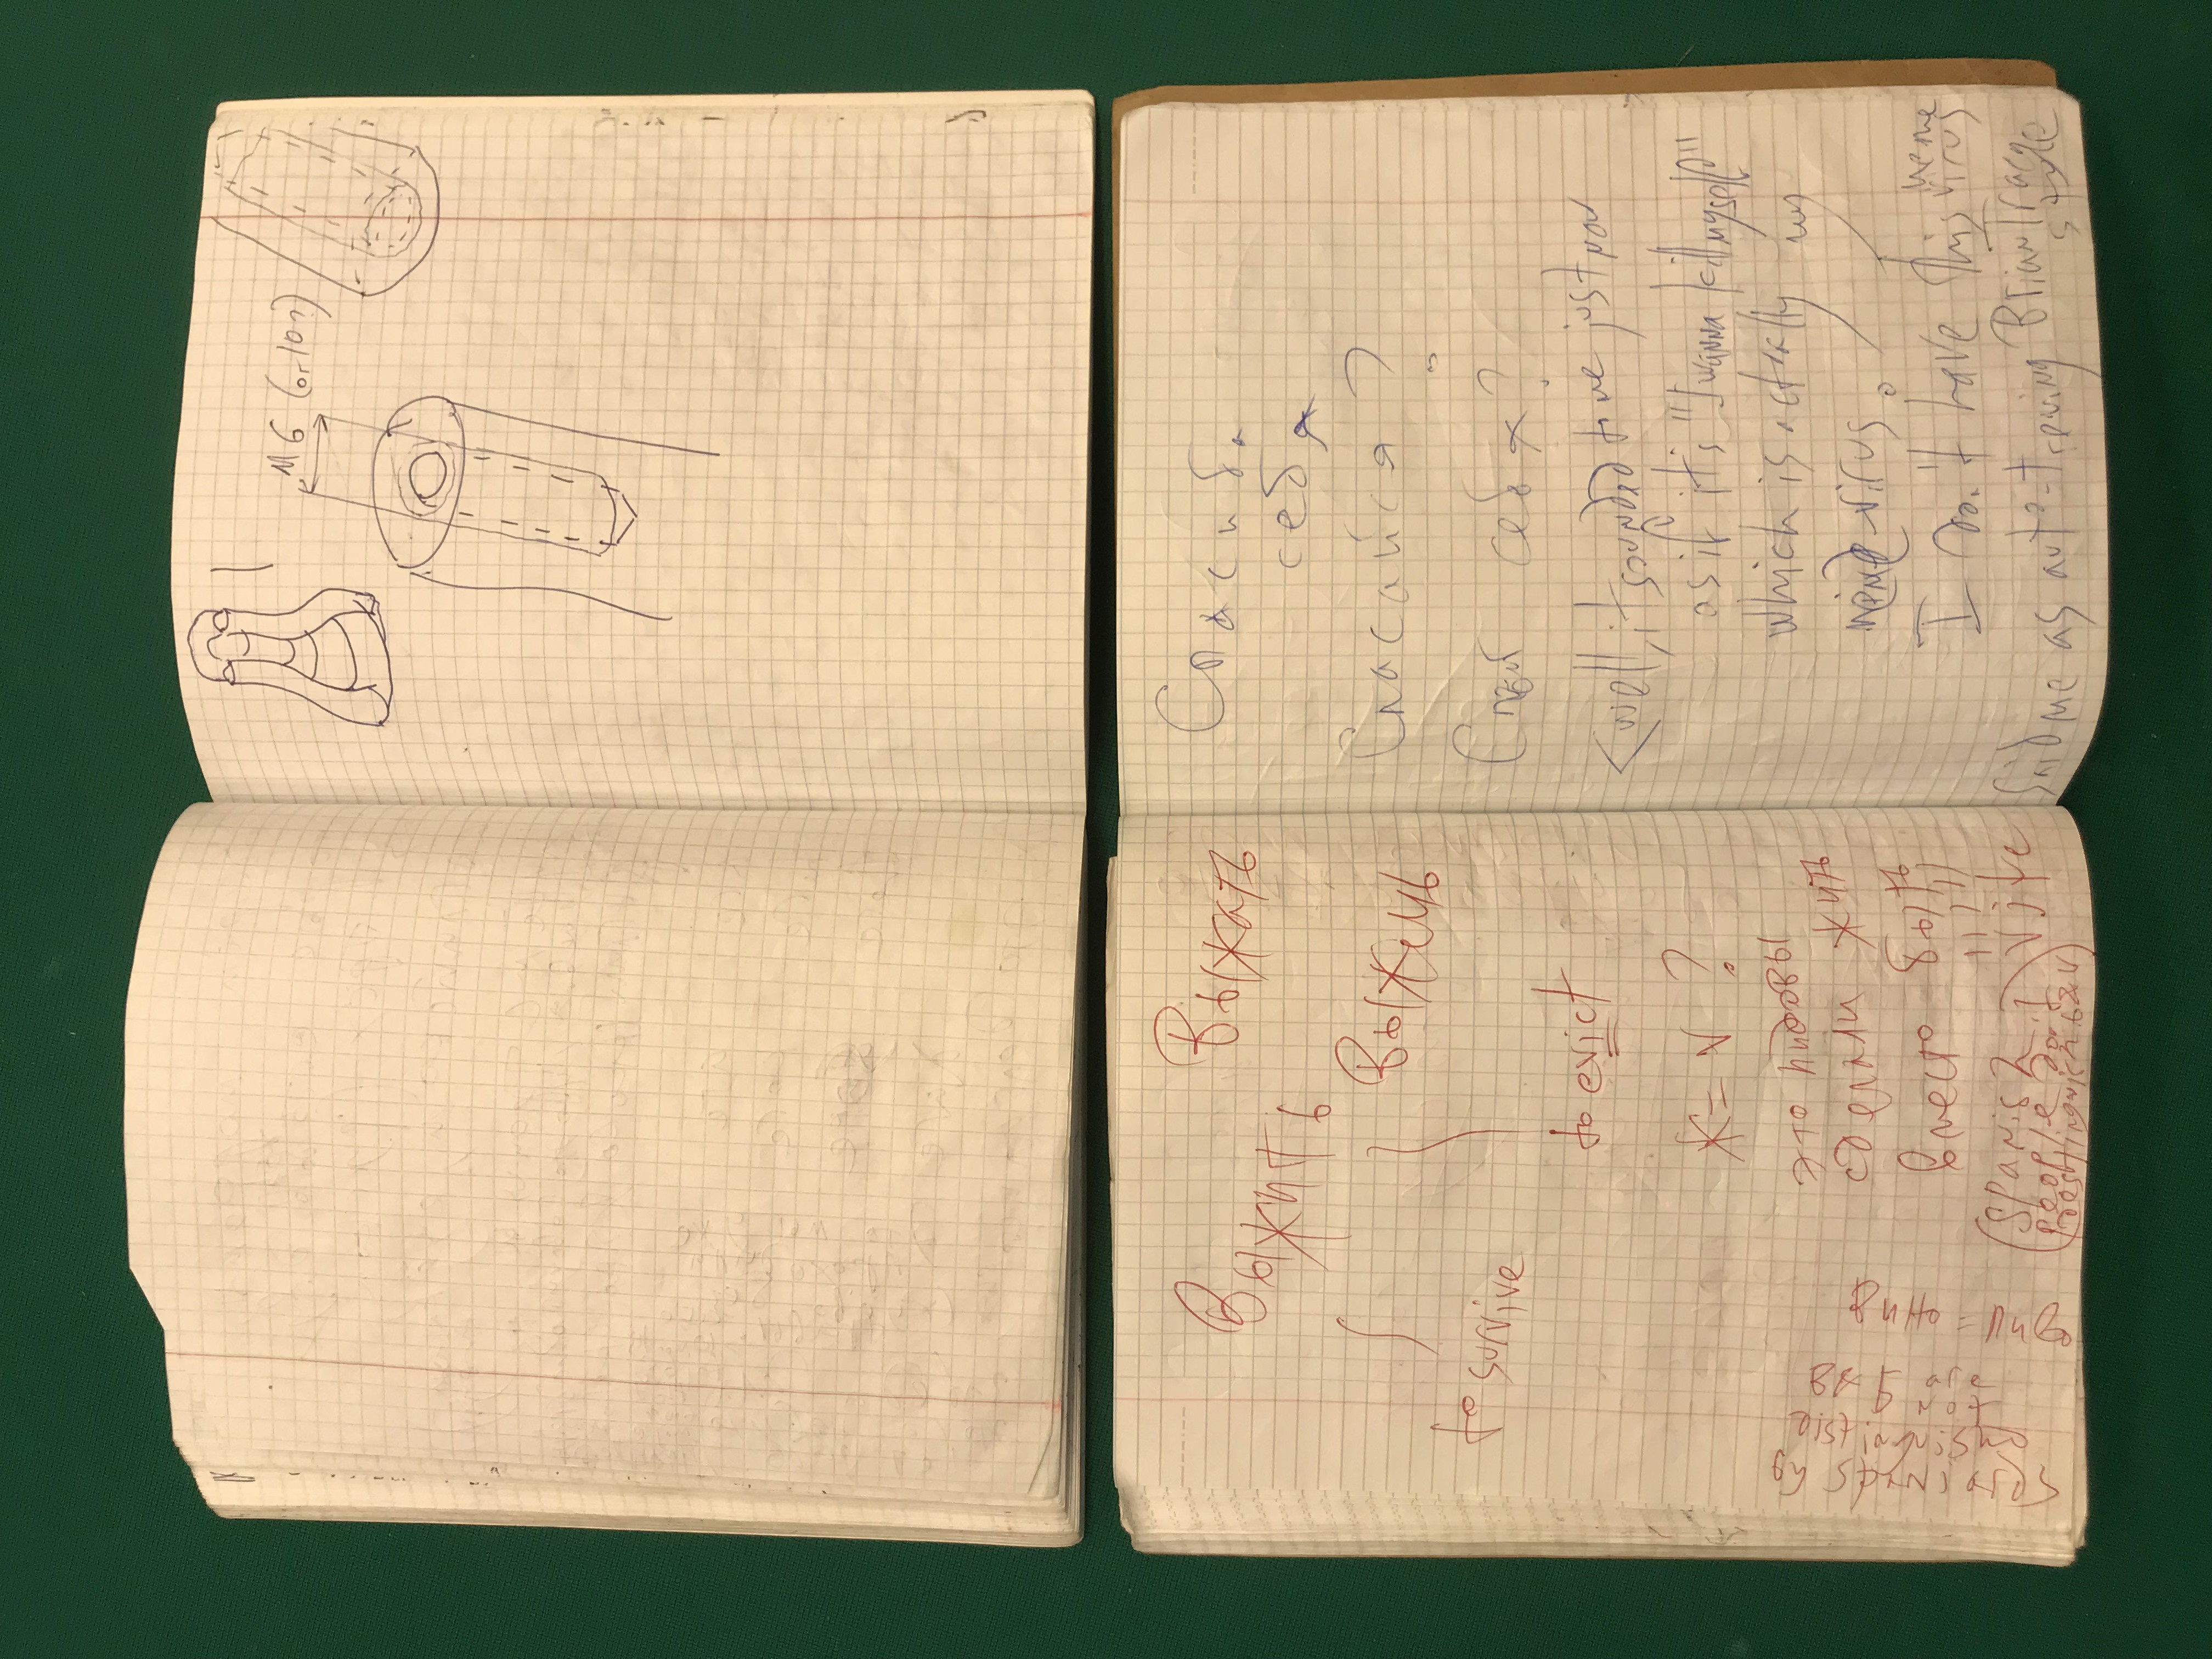 M6 (or 10?)
Выжить
Выжать
Выжемь
to survive
to evict
Ж = V ?
это
сделали жить
вместо быть
vite
(Spanish
people don't
distinguish b & v)
Вино = Пиво
B & Б are
not
distinguished
by
Спасиба
себя
Спасайся?
себя?
<well, it sounded to me just now
as if it's "I wanna kill myself"
which is actually my
meme-virus.
I don't have this meme
virus
Said me as auto-trening Brian Tracy
style